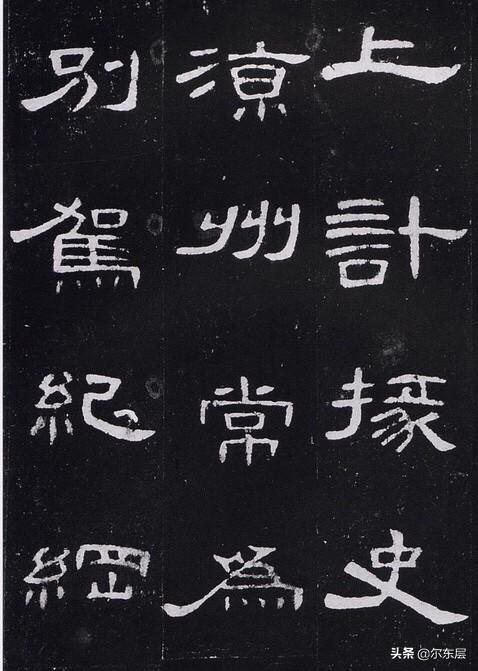 上計掾史
涼州常為
別駕紀綱
头条 @尔东层